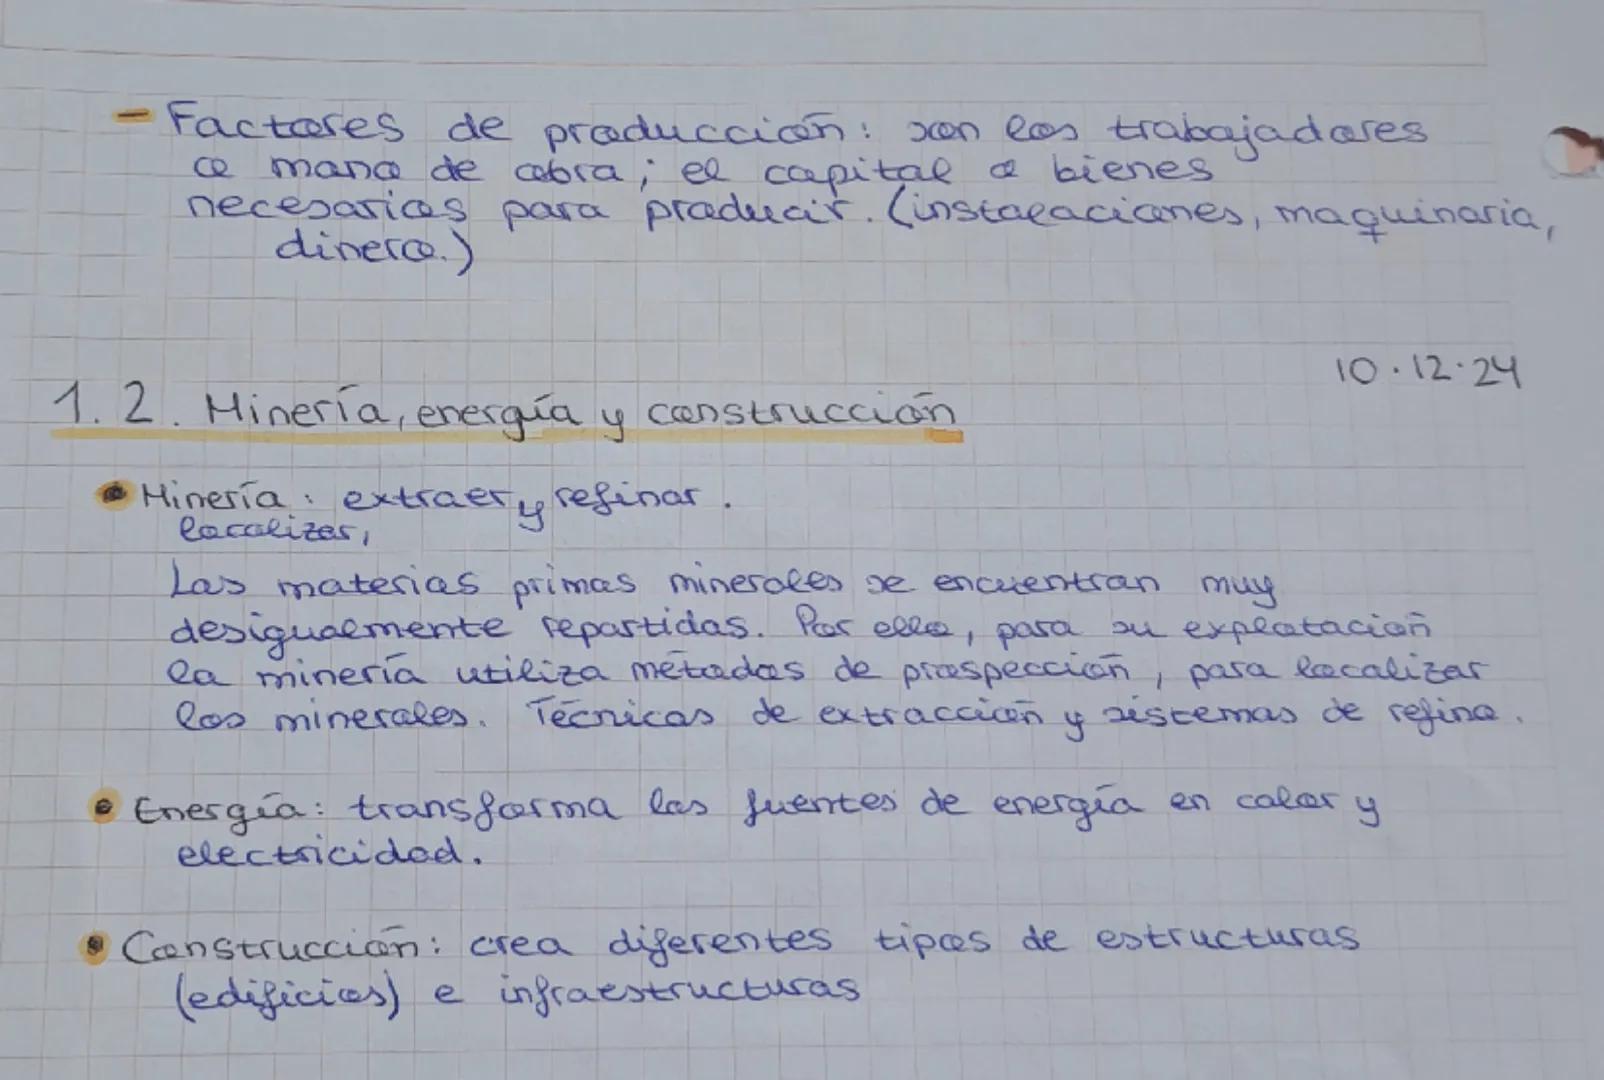 - Factores de producción: son los trabajadores
o mano de obra; el capital o bienes
necesarios para producir. (instalaciones, maquinaria,
dinero.)
10.12.24
1.2. Minería, energía y construcción
• Minería: extraer y refinar.
localizar,
Las materias primas minerales se encuentran muy
desigualmente repartidas. Por ello, para su explotación
la minería utiliza métodos de prospección, para localizar
los minerales. Técnicas de extracción y sistemas de refino.
• Energía: transforma las fuentes de energía en calor y
electricidad.
• Construcción: crea diferentes tipos de estructuras
(edificios) e infraestructuras